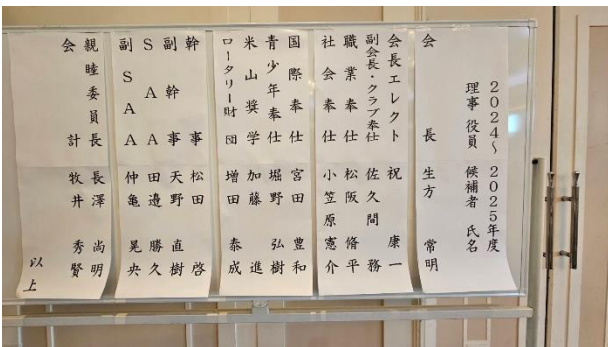 2024~2025年度
理事役員 候補者 氏名
会長 生方 常明
会長エレクト 祝 康一
副会長・クラブ奉仕 佐久間 務
職業奉仕 松阪 脩平
社会奉仕 小笠原 憲介
国際奉仕 宮田 豊和
青少年奉仕 堀野 弘樹
米山奨学 加藤 進
ロータリー財団 増田 泰成
幹事 松田 啓
副幹事 天野 直樹
SAA 田邉 勝久
副SAA 仲亀 晃央
親睦委員長 長澤 尚明
会計 牧井 秀賢
以上